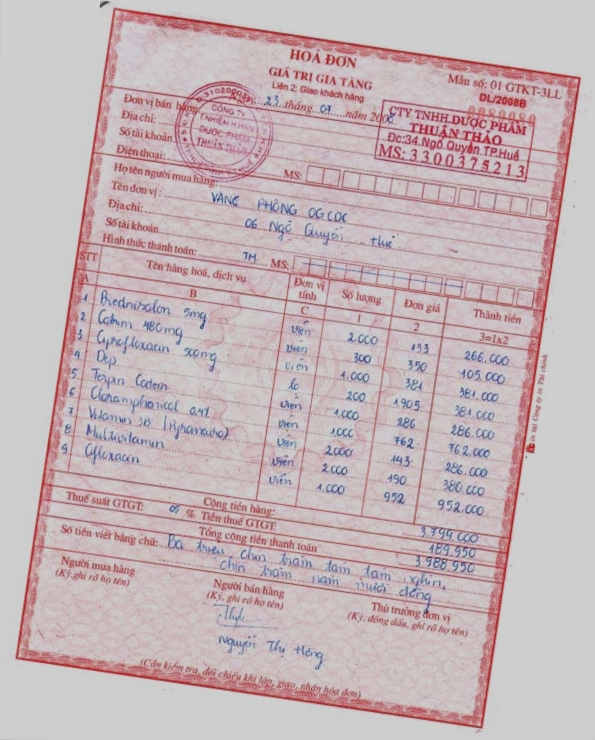 HOÁ ĐƠN
GIÁ TRỊ GIA TĂNG
Liên 2: Giao khách hàng
Mẫu số: 01 GTKT-3LL
DL/2008B
23 tháng 07 năm 200
CÔNG TY
TNHH
DƯỢC PHẨM
THUẬN THẢO
CTY TNHH.DƯỢC PHẨM
THUẬN THẢO
Đc:34.Ngô Quyền.TP.Huế
MS: 3300375213
Đơn vị bán hàng:
Địa chỉ:
Số tài khoản
Điện thoại: MS:
Họ tên người mua hàng:
Tên đơn vị: VĂN PHÒNG OGCDC
Địa chỉ: 06 Ngô Quyền - Huế
Số tài khoản
Hình thức thanh toán: TM. MS:
STT Tên hàng hoá, dịch vụ Đơn vị tính Số lượng Đơn giá Thành tiền
A B C 1 2 3=1x2
1 Prednisolon 5mg viên 2.000 133 266.000
2 Cotrim 480mg viên 300 350 105.000
3 Ciprofloxacin 500mg viên 1.000 381 381.000
4 Dep lọ 200 1905 381.000
5 Terpin Codein viên 1.000 286 286.000
6 Cloramphenical 0.4% viên 1.000 762 762.000
7 Vitamin 3B viên 2.000 143 286.000
8 Multivitamin viên 2.000 190 380.000
9 Ofloxacin viên 1.000 952 952.000
Cộng tiền hàng: 3.799.000
Thuế suất GTGT: 05 % Tiền thuế GTGT: 189.950
Tổng cộng tiền thanh toán 3.988.950
Số tiền viết bằng chữ: Ba triệu chín trăm tám tám nghìn,
chín trăm năm mươi đồng
Người mua hàng
(Ký, ghi rõ họ tên)
Người bán hàng
(Ký, ghi rõ họ tên)
Thủ trưởng đơn vị
(Ký, đóng dấu, ghi rõ họ tên)
Nguyễn Thị Hồng
(Cần kiểm tra, đối chiếu khi lập, giao, nhận hóa đơn)